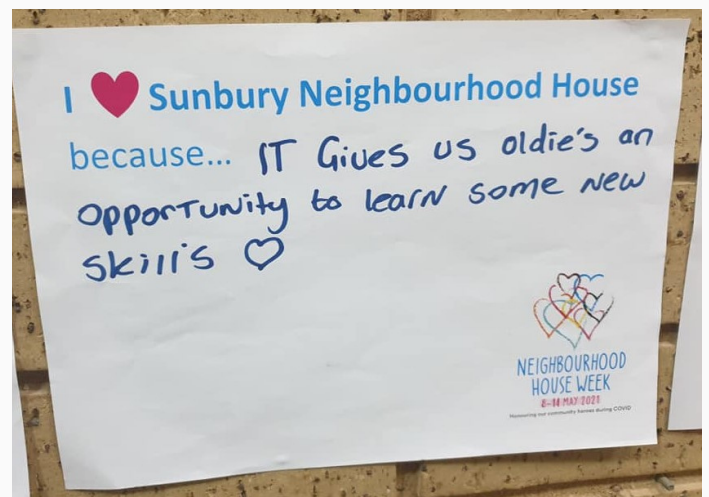 I ❤ Sunbury Neighbourhood House
because... IT Gives us oldie's an
opportunity to learn some new
skill's ♡
NEIGHBOURHOOD
HOUSE WEEK
8-14 MAY 2021
Honouring our community heroes during COVID